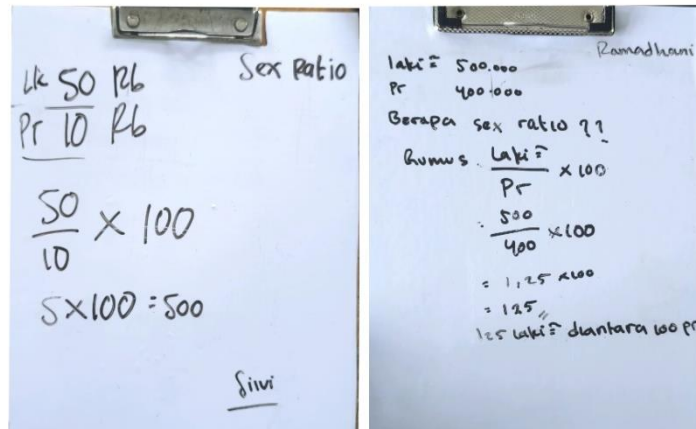 Sex Ratio
Lk 50 Rb
Pr 10 Rb
50
10
× 100
5×100 = 500
Silvi
Ramadhani
laki² = 500.000
Pr 400.000
Berapa sex ratio ??
Rumus : Laki²
Pr
× 100
: 500
400
×100
= 1,25 ×100
= 125 //
125 laki² diantara 100 pr